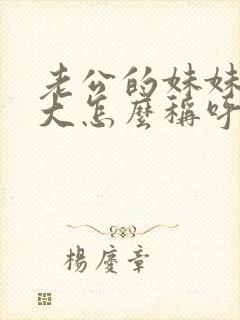 老公的妹妹
大怎麼稱呼
楊慶章